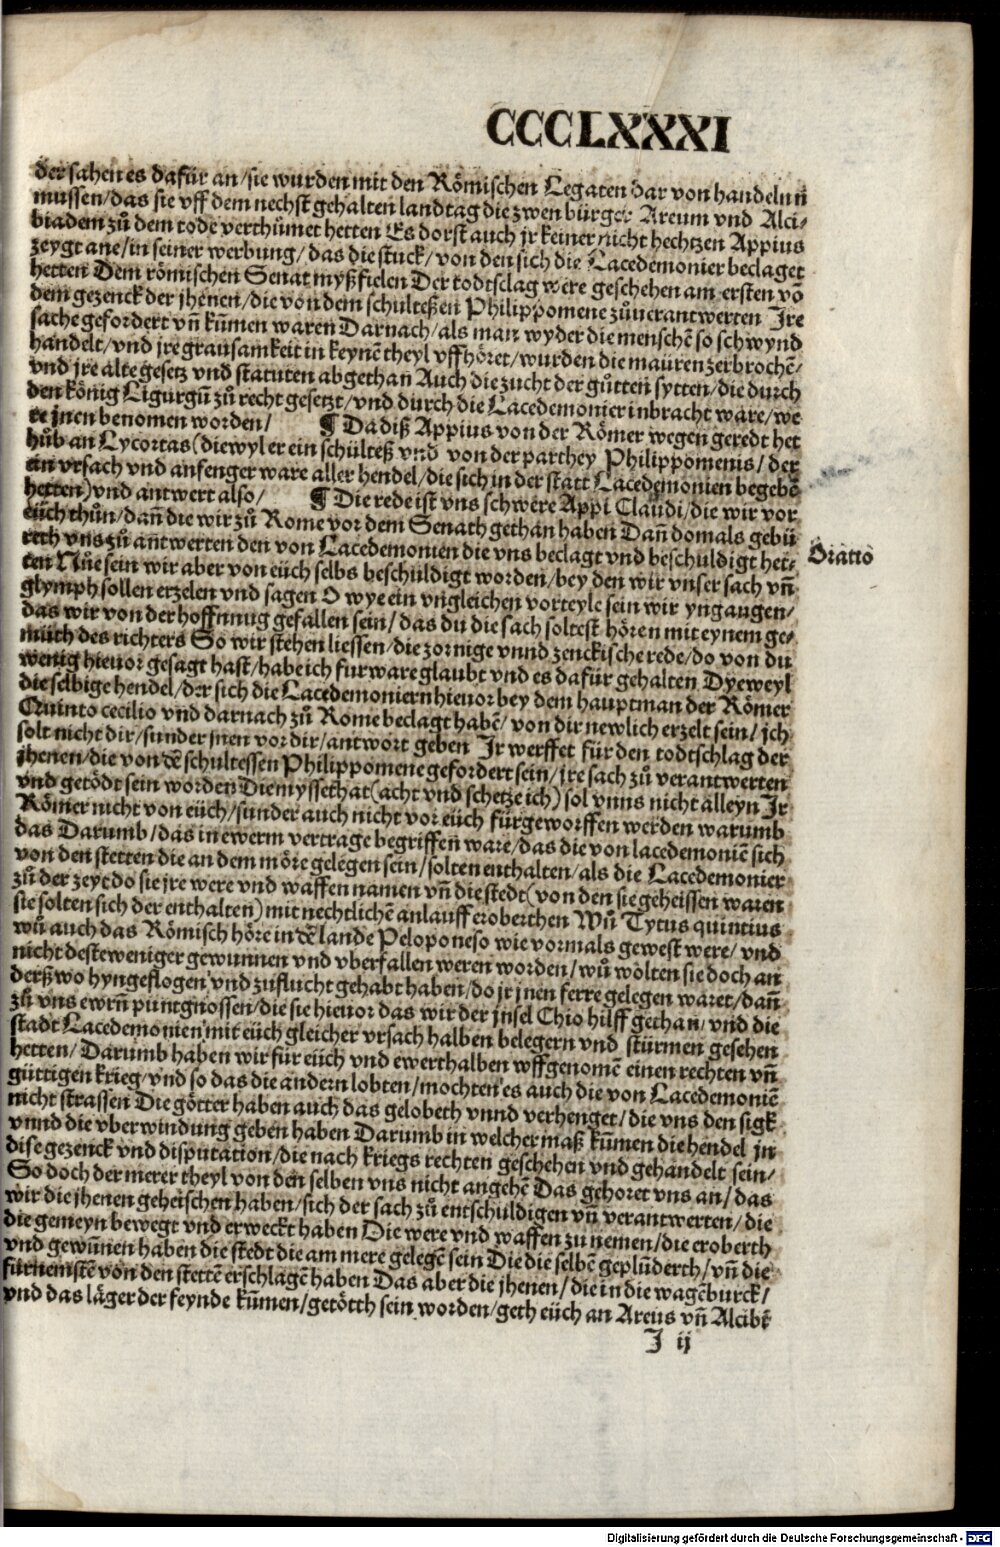 CCCCLXXXI
der sahen es dafür an/sie wurden mit den Römischen Legaten dar von handeln ñ
mussen/das sie vff dem nechst gehalten landtag die zwen bürger Areum vnd Alci⸗
biadem zů dem tode verthümet hetten Es dorst auch jr keiner nicht hechtzen Appius
zeygt ane/in seiner werbung/das die stuck/von den sich die Lacedemonier beclaget
hetten Dem römischen Senat myßfielen Der todtsclag were geschehen am ersten võ
dem gezenck der jhenen/die von dem schulteßen Philippomene zůuerantwerten Jre
sache gefordert vñ kũmen waren Darnach/als man wyder die menschẽ so schwynd
handelt/vnd jre grausamkeit in keynẽ theyl vffhöret/wurden die mauren zerbrochẽ/
vnd jre alte gesetz vnd statuten abgethan Auch die zucht der gůtten sytten/die durch
den könig Ligurgũ zů recht gesetzt/vnd durch die Lacedemonier inbracht ware/we
re jnen benomen worden/ ¶ Da diß Appius von der Römer wegen geredt het
hůb an Lycortas(diewyl er ein schülteß vnd von der parthey Philippomenis/der
ein vrsach vnd anfenger ware aller hendel/die sich in der statt Lacedemonien begebẽ
hetten)vnd antwert also/ ¶ Die rede ist vns schwere Appi Claudi/die wir vor
eüch thůn/dañ die wir zů Rome vor dem Senath gethan haben Dañ domals gebü
reth vns zů antwerten den von Lacedemonien die vns beclagt vnd beschuldigt het⸗
Oratio
ten Nůe sein wir aber von eüch selbs beschuldigt worden/bey den wir vnser sach vñ
glymph sollen erzelen vnd sagen O wye ein vngleichen vorteyle sein wir yngangen/
das wir von der hoffnnug gefallen sein/das du die sach soltest hören mit eynem ge⸗
můth des richters So wir stehen liessen/die zornige vnnd zenckische rede/do von du
wenig hieuor gesagt hast/habe ich fur ware glaubt vnd es dafür gehalten Dyeweyl
die selbige hendel/der sich die Lacedemoniern hieuor bey dem hauptman der Römer
Quinto cecilio vnd darnach zů Rome beclagt habẽ/von dir newlich erzelt sein/jch
solt nicht dir/sunder jnen vor dir/antwort geben Jr werffet für den todtschlag der
jhenen/die von dẽ schultessen Philippomene gefordert sein/jre sach zů verantwerten
vnd getödt sein worden Die myssethat(acht vnd schetze ich)sol vnns nicht alleyn Jr
Römer nicht von eüch/sunder auch nicht vor eüch fürgeworffen werden warumb
das Darumb/das in ewerm vertrage begriffen ware/das die von lacedemoniẽ sich
von den stetten die an dem möre gelegen sein/solten enthalten/als die Lacedemonier
zů der zeyt do sie jre were vnd waffen namen vñ die stedt(von den sie geheissen waren
sie solten sich der enthalten)mit nechtlichẽ anlauff eroberthen Wů Tytus quintius
wů auch das Römisch höre in dẽ lande Peloponeso wie vormals gewest were/vnd
nicht desteweniger gewunnen vnd vberfallen weren worden/wů wolten sie doch an
derßwo hyngeflogen vnd zuflucht gehabt haben/do jr jnen ferre gelegen waret/dañ
zů vns ewrñ puntgnossen/die sie hieuor das wir der jnsel Chio hilff gethan/vnd die
stadt Lacedemonien mit eüch gleicher vrsach halben belegern vnd stürmen gesehen
hetten/Darumb haben wir für eüch vnd ewerthalben vffgenomẽ einen rechten vñ
güttigen krieg/vnd so das die andern lobten/mochten es auch die von Lacedemoniẽ
nicht strassen Die götter haben auch das gelobeth vnnd verhenget/die vns den sigk
vnnd die vberwindung geben haben Darumb in welcher maß kũmen die hendel jn
dise gezenck vnd disputation/die nach kriegs rechten geschehen vnd gehandelt sein/
So doch der merer theyl von den selben vns nicht angehẽ Das gehoret vns an/das
wir die jhenen geheischen haben/sich der sach zů entschuldigen vñ verantwerten/die
die gemeyn bewegt vnd erweckt haben Die were vnd waffen zu nemen/die eroberth
vnd gewũnen haben die stedt die am mere gelegẽ sein Die die selbẽ geplüderth/vñ die
fürnemstẽ von den stettẽ erschlagẽ haben Das aber die jhenen/die in die wagẽburck/
vnd das läger der feynde kũmen/getötth sein worden/geth eüch an Areus vñ Alcibi
J ij
Digitalisierung gefördert durch die Deutsche Forschungsgemeinschaft - DFG